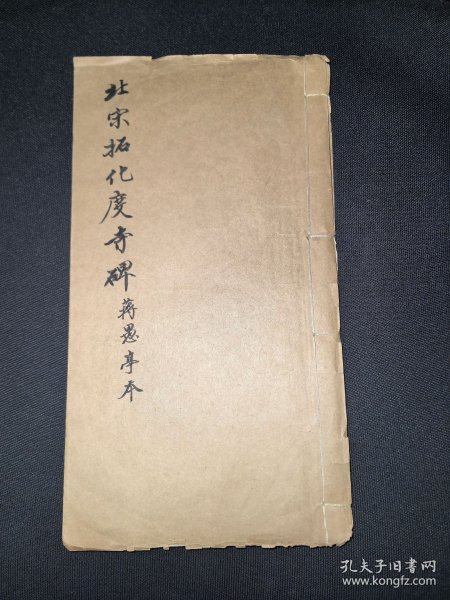 北宋拓化度寺碑 蒋愚亭本
孔夫子旧书网
www.kongfz.com